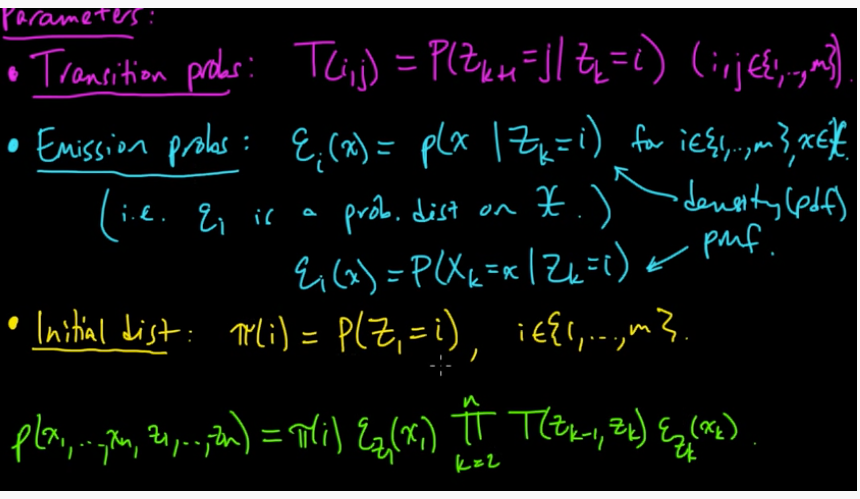 Parameters:
• Transition probs: T(i,j) = P(Z_{k+1}=j | Z_k=i) (i,j∈{1,..,m}).
• Emission probs: ε_i(x) = p(x | Z_k=i) for i∈{1,..,m}, x∈𝒳.
(i.e. ε_i is a prob. dist on 𝒳.) density (pdf)
ε_i(x) = P(X_k=x | Z_k=i) pmf.
• Initial dist: π(i) = P(Z_1=i), i∈{1,...,m}.
p(x_1,..,x_n, z_1,..,z_n) = π(i) ε_{z_1}(x_1) ∏_{k=2}^{n} T(z_{k-1}, z_k) ε_{z_k}(x_k).